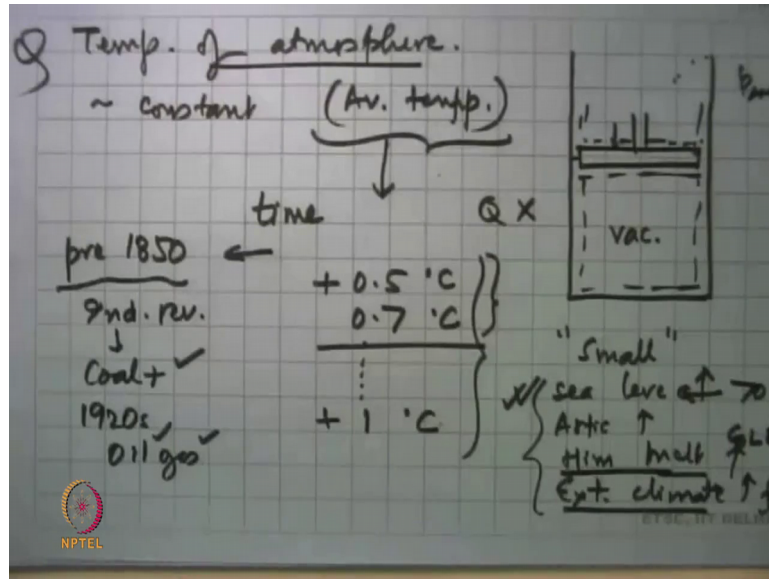 Q Temp. of atmosphere.
~ constant (Av. temp.)
time
Q X
pre 1850
Ind. rev.
Coal + ✓
1920s ✓
Oil gas ✓
+ 0.5 °C
0.7 °C
+ 1 °C
vac.
"Small"
sea leve ↑
Artic ↑
Him melt ↑
Ext. climate ↑
ETSC, IIT DELHI
NPTEL